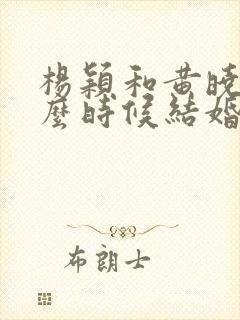 楊穎和黃曉
麼時候結婚
布朗士